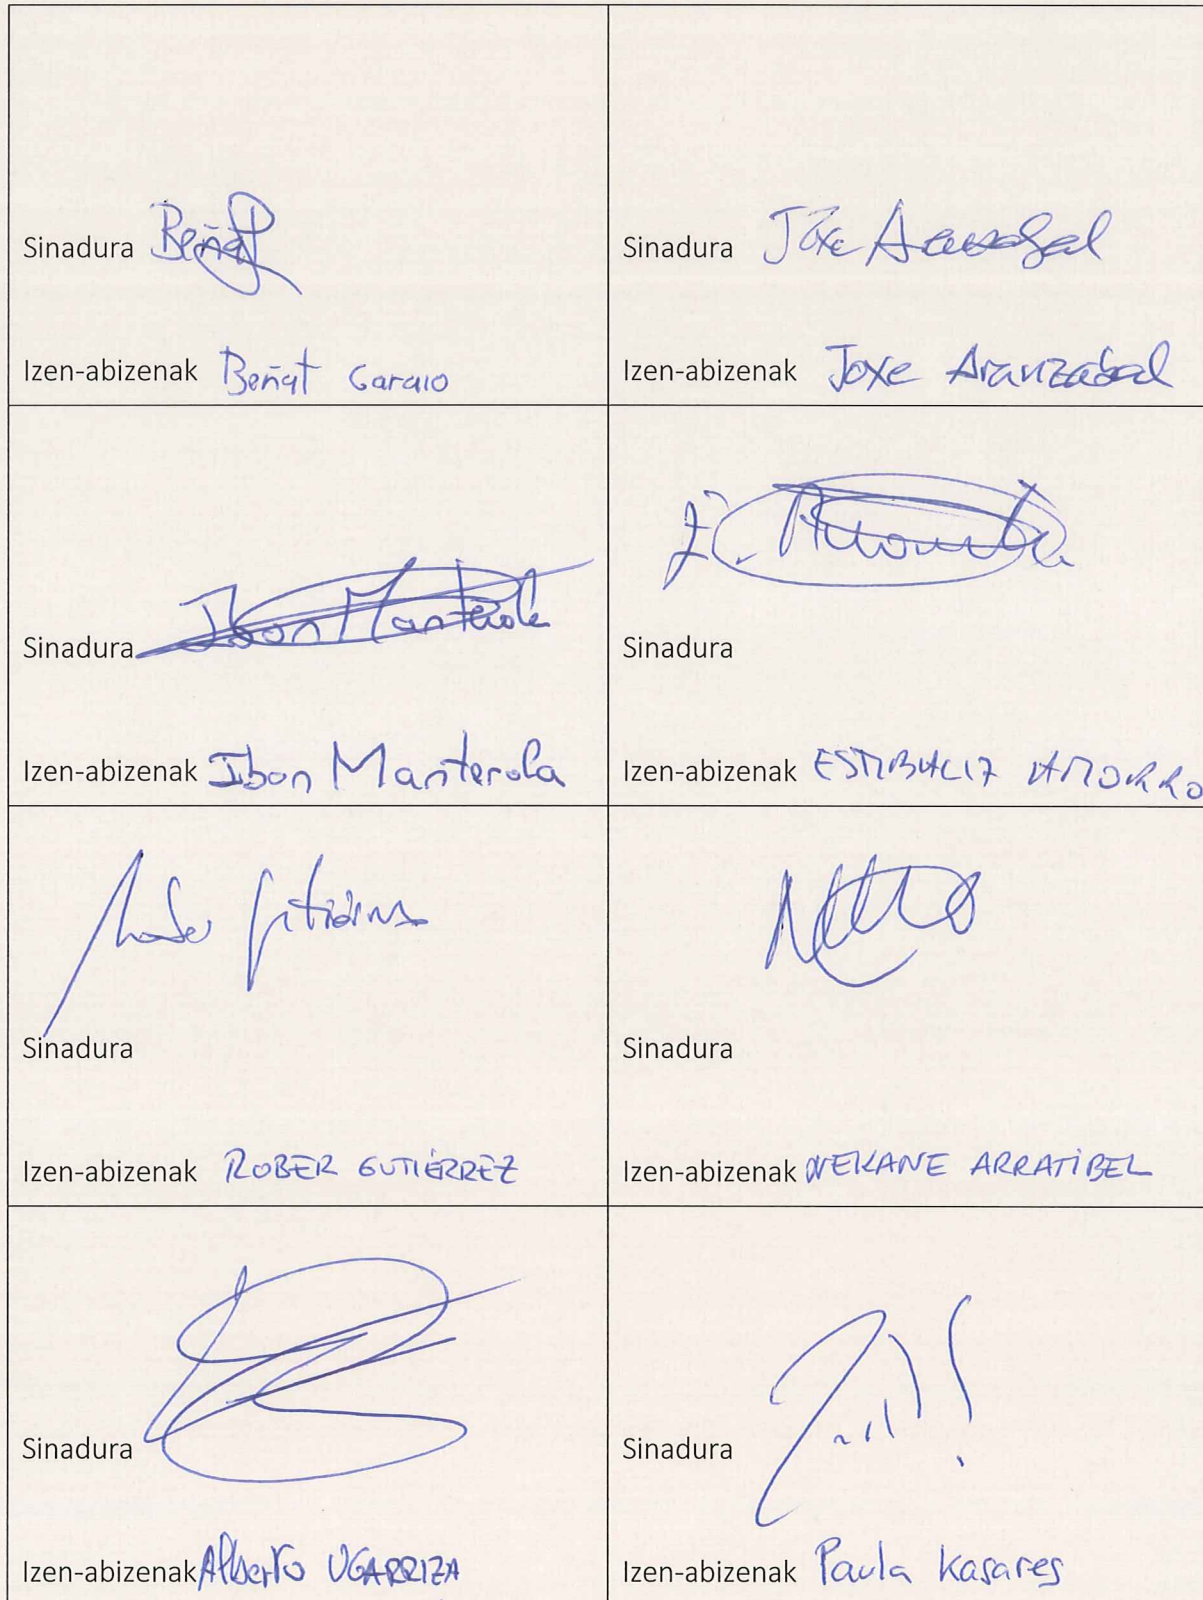 Sinadura Beñat
Izen-abizenak Beñat Garaio
Sinadura Joxe Aranzabal
Izen-abizenak Joxe Aranzabal
Sinadura Ibon Manterola
Izen-abizenak Ibon Manterola
Sinadura
Izen-abizenak ESTIBALIZ AMORRO
Sinadura
Izen-abizenak ROBER GUTIÉRREZ
Sinadura
Izen-abizenak NEKANE ARRATIBEL
Sinadura
Izen-abizenak Alberto UGARRIZA
Sinadura
Izen-abizenak Paula Kasares